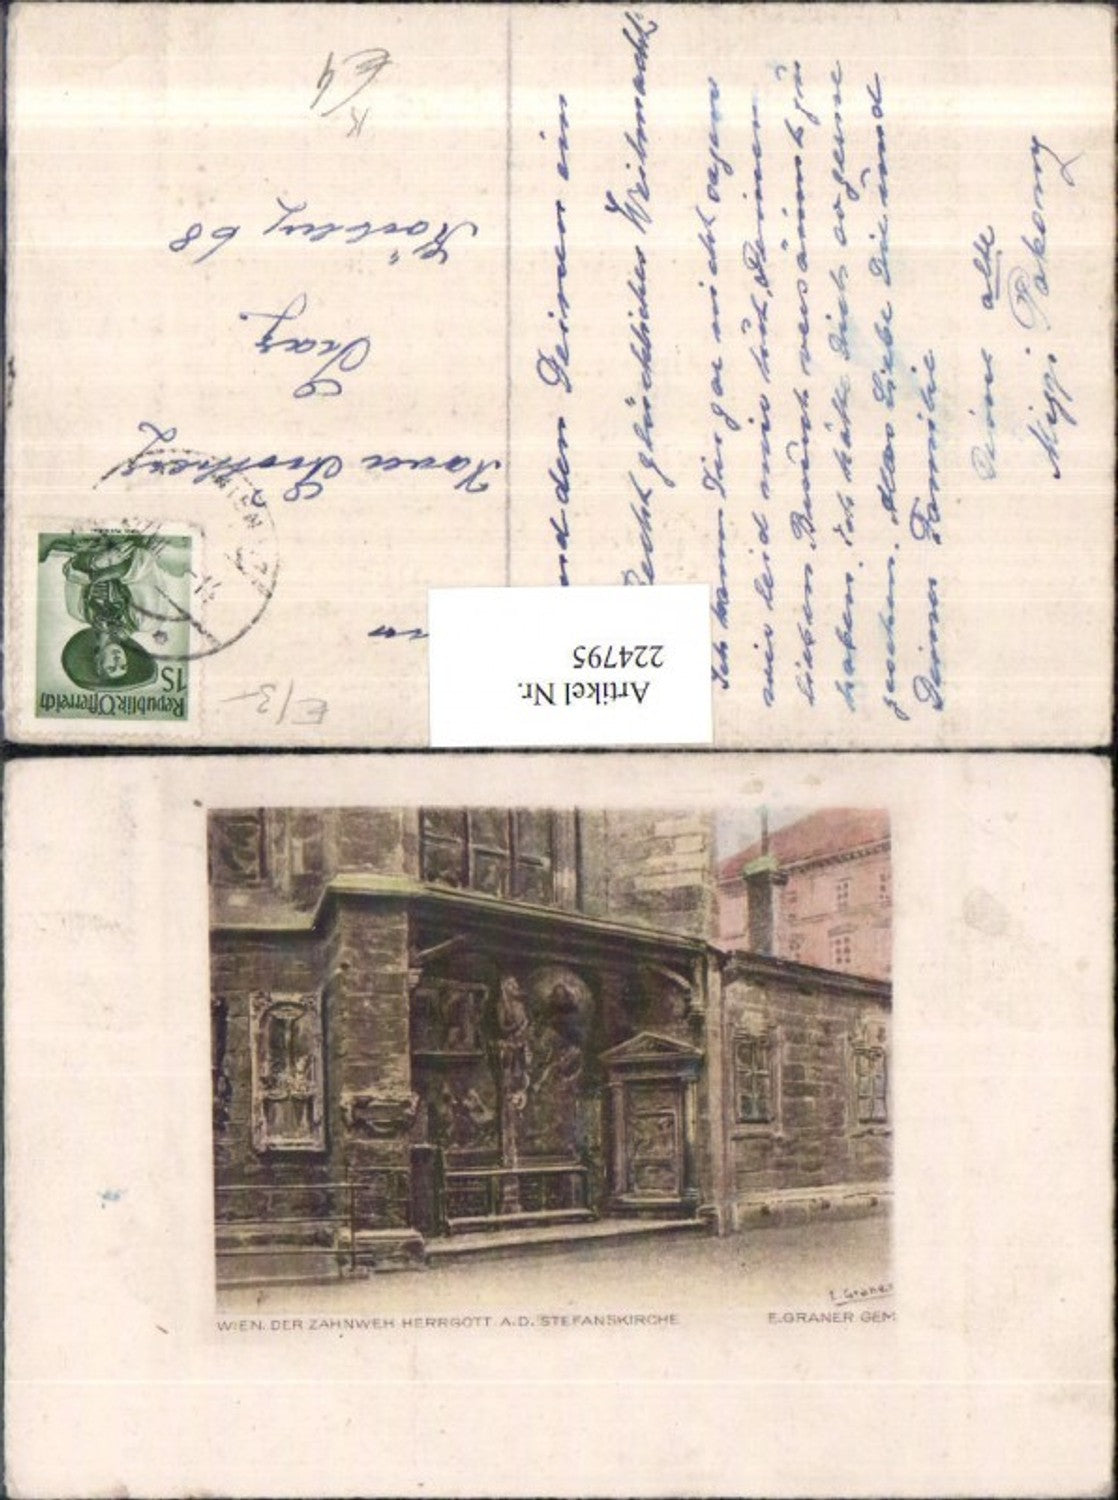 Republik Österreich
1S
WIEN
E/3-
Graz.
68
Artikel Nr.
224795
und den Deinen ein
Recht glückliches Weihnacht
Ich kann Dir gar nicht sagen
mir leid mir Deinen
lieben Besuch versäumt zu
haben. Ich hätte Dich so gerne
gesehen. Alles Liebe Dir und
Deiner Familie
Deine alte
Mizzi Pokorny
WIEN. DER ZAHNWEH HERRGOTT A.D. STEFANSKIRCHE
E.GRANER GEM
E. Graner